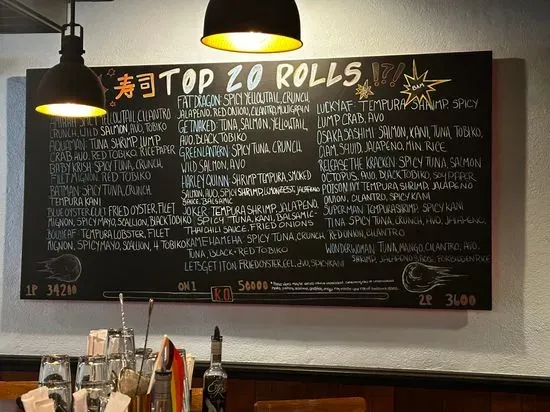 寿司 TOP 20 ROLLS !?!
BAM
CRUNCH, WILD SALMON, AVO, TOBIKO
AQUAMAN: TUNA, SHRIMP, LUMP
CRAB, AVO, RED TOBIKO, RICE PAPER
BABY KRISH SPICY TUNA, CRUNCH,
FILET MIGNON, RED TOBIKO
BATMAN: SPICY TUNA, CRUNCH,
TEMPURA KANI
BLUE OYSTER CULT: FRIED OYSTER, FILET
MIGNON, SPICY MAYO, SCALLION, BACK TOBIKO
TEMPURA LOBSTER, FILET
MIGNON, SPICY MAYO, SCALLION, 4 TOBIKO
FAT DRAGON: SPICY YELLOWTAIL, CRUNCH,
JALAPENO, RED ONION, CILANTRO,
GET NAKED: TUNA, SALMON, YELLOWTAIL,
AVO, BLACK TOBIKO
GREEN LANTERN: SPICY TUNA, CRUNCH
WILD SALMON, AVO
HARLEY QUINN: SHRIMP TEMPURA, SMOKED
SALMON, AVO, SPICY SHRIMP, JALAPENO
JOKER: TEMPURA SHRIMP, JALAPENO,
SPICY TUNA, KANI, BALSAMIC-
THAI CHILI SAUCE, FRIED ONIONS
KAMEHAMEHA SPICY TUNA, CRUNCH
TUNA, BLACK + RED TOBIKO
LETS GET IT ON FRIED OYSTER, EEL, AVO, SPICY KANI
LUCKY AF: TEMPURA SHRIMP, SPICY
LUMP CRAB, AVO
OSAKA SASHIMI SALMON, KANI, TUNA, TOBIKO,
SQUID, JALAPENO, MIN. RICE
RELEASE THE KRACKEN SPICY TUNA, SALMON
OCTOPUS, AVO, BLACK TOBIKO, SOY PAPER
POISON IVY TEMPURA SHRIMP, JALAPENO
ONION, CILANTRO, SPICY KANI
SUPERMAN TEMPURA SHRIMP, SPICY KANI
TINA SPICY TUNA, CRUNCH, AVO, JALAPENO,
RED ONION, CILANTRO
WONDER WOMAN TUNA, MANGO, CILANTRO, AVO,
SHRIMP, JALAPENO
1P 34200
50000
K.O
2P 3600